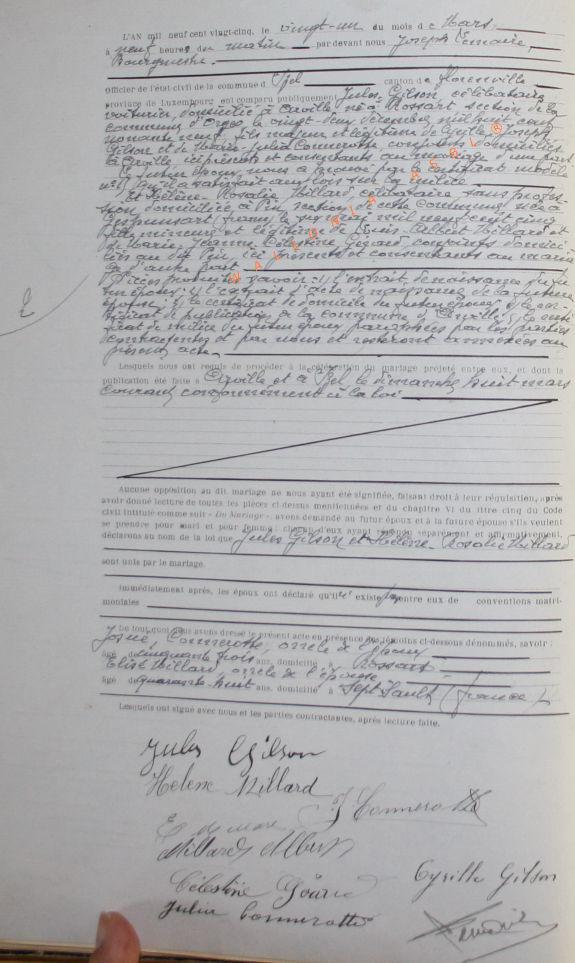 L'AN mil neuf cent vingt-cinq, le vingt-un du mois de Mars
à neuf heures du matin par devant nous Joseph Lemaire,
Bourgmestre
Officier de l'état-civil de la commune d'Izel canton de Florenville
province de Luxembourg ont comparu publiquement Jules Gilson, célibataire
voiturier, domicilié à né à Rossart section de la
commune d'Orgeo, le vingt-deux décembre mil huit cent
nonante neuf, fils majeur et légitime de Cyrille Joseph
Gilson et de Marie-Julia Connerotte, conjoints domiciliés
à ici présents et consentants au mariage d'une part
le futur époux nous a prouvé par le certificat modèle
qu'il a satisfait aux lois sur la milice
et Hélène-Rosalie Millard célibataire sans profes-
sion domiciliée à section de cette commune, née à
mil neuf cent cinq
fille mineure et légitime de Louis-Albert Millard et
de Marie Jeanne Célestine Gérard, conjoints domici-
liés au dit ici présents et consentants au maria
ge d'autre part
Pièces produites savoir: 1) l'extrait de naissance du fu-
tur époux; 2) l'extrait d'acte de naissance de la future
épouse; 3) le certificat de domicile du futur époux;
tificat de publication de la commune d' ; 5) le certi
ficat de milice du futur époux paraphées par les parties
contractantes et par nous et resteront annexées au
présent acte.
Lesquels nous ont requis de procéder à la célébration du mariage projeté entre eux, et dont la
publication été faite à et à Izel, le dimanche huit mars
courant conformément à la loi
Aucune opposition au dit mariage ne nous ayant été signifiée, faisant droit à leur réquisition, après
avoir donné lecture de toutes les pièces ci-dessus mentionnées et du chapitre VI du titre cinq du Code
civil intitulé comme suit « Du Mariage », avons demandé au futur époux et à la future épouse s'ils veulent
se prendre pour mari et pour femme; chacun d'eux ayant répondu séparément et affirmativement,
déclarons au nom de la loi que Jules Gilson et Hélène-Rosalie Millard
sont unis par le mariage.
Immédiatement après, les époux ont déclaré qu'il n'existe pas entre eux de conventions matri-
moniales
De tout quoi nous avons dressé le présent acte en présence des témoins ci-dessous dénommés, savoir:
Josué, Connerotte, oncle de l'époux
âgé de cinquante trois ans, domicilié à Rossart
Elisé Millard, oncle de l'épouse
âgé de quarante-huit ans, domicilié à Sept-Saulx (France)
Lesquels ont signé avec nous et les parties contractantes, après lecture faite.
2
WALLONIA ASGBL ®
Jules Gilson
Helene Millard
J Connerotte
Millard Albert
Célestine Gérard
Cyrille Gilson
Julia Connerotte